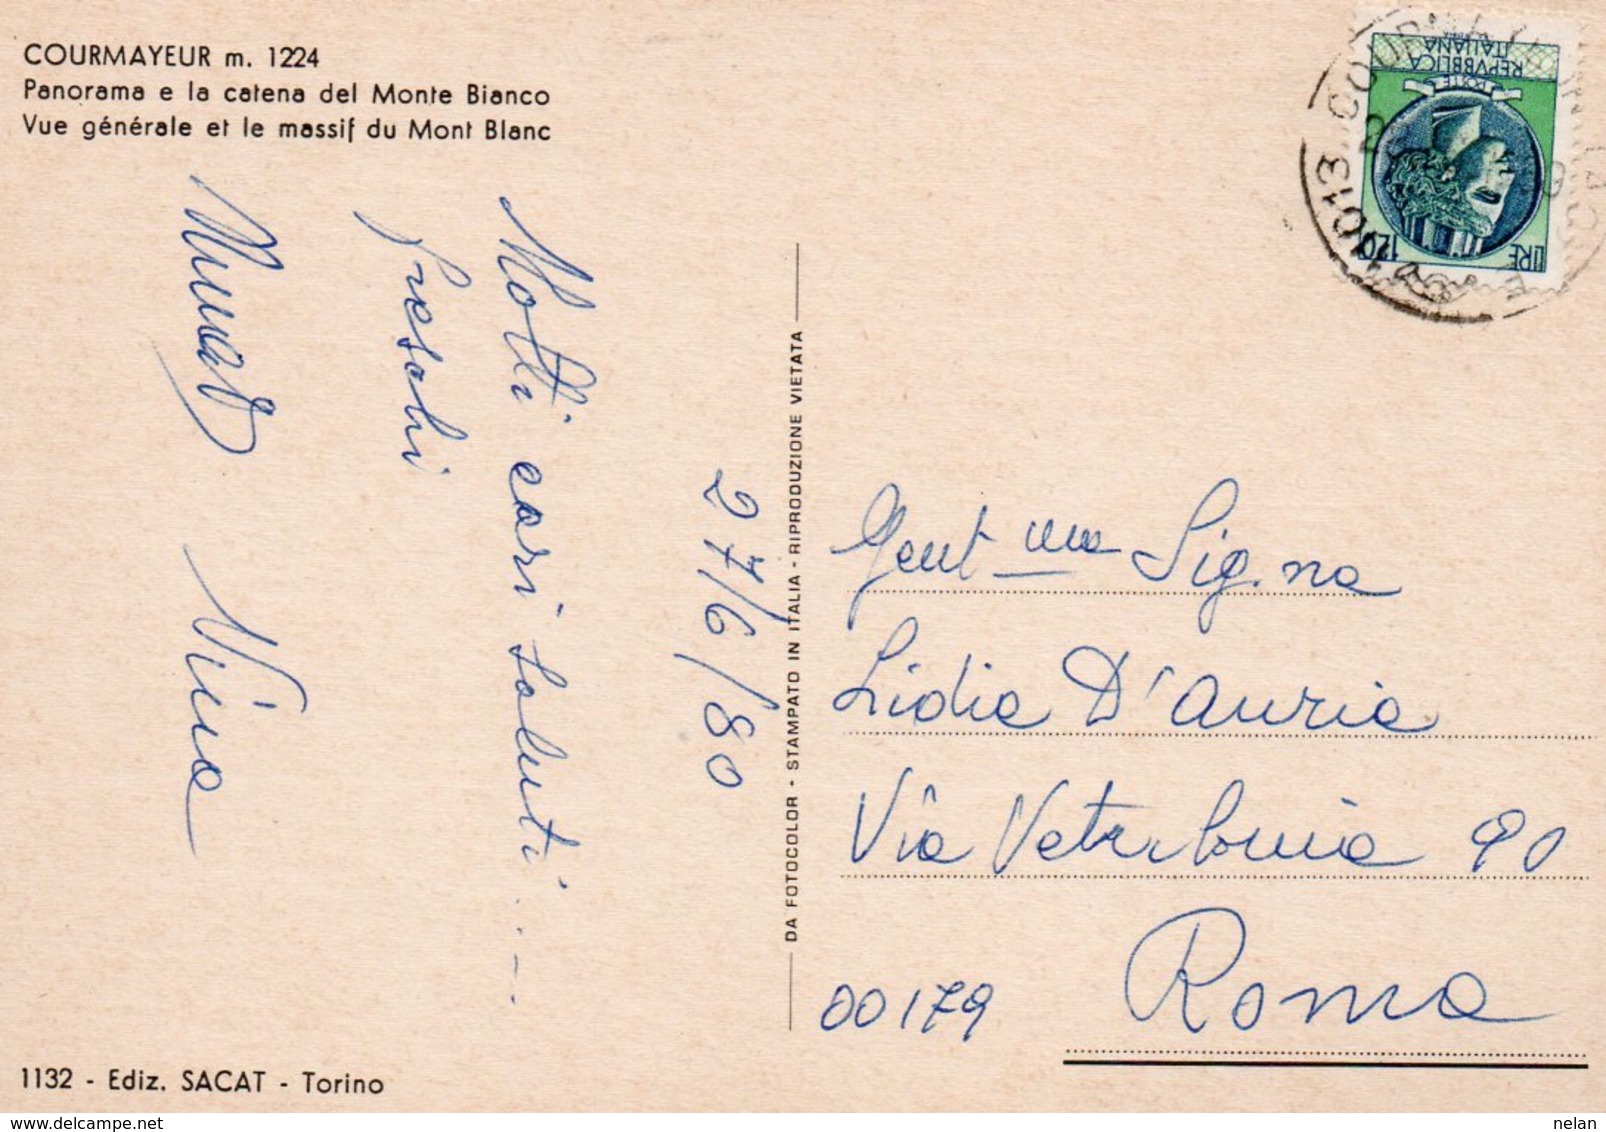 COURMAYEUR m. 1224
Panorama e la catena del Monte Bianco
Vue générale et le massif du Mont Blanc
27/6/80
Molti cari saluti...
freschi
Nina
DA FOTOCOLOR - STAMPATO IN ITALIA - RIPRODUZIONE VIETATA
REPVBBLICA
ITALIANA
POSTE
LIRE 120
11013 COURMAYEUR
Gent.ma Sig.na
Lidia D'Auria
Via Vetulonia 90
00179 Roma
1132 - Ediz. SACAT - Torino
delcampe.net
nelan